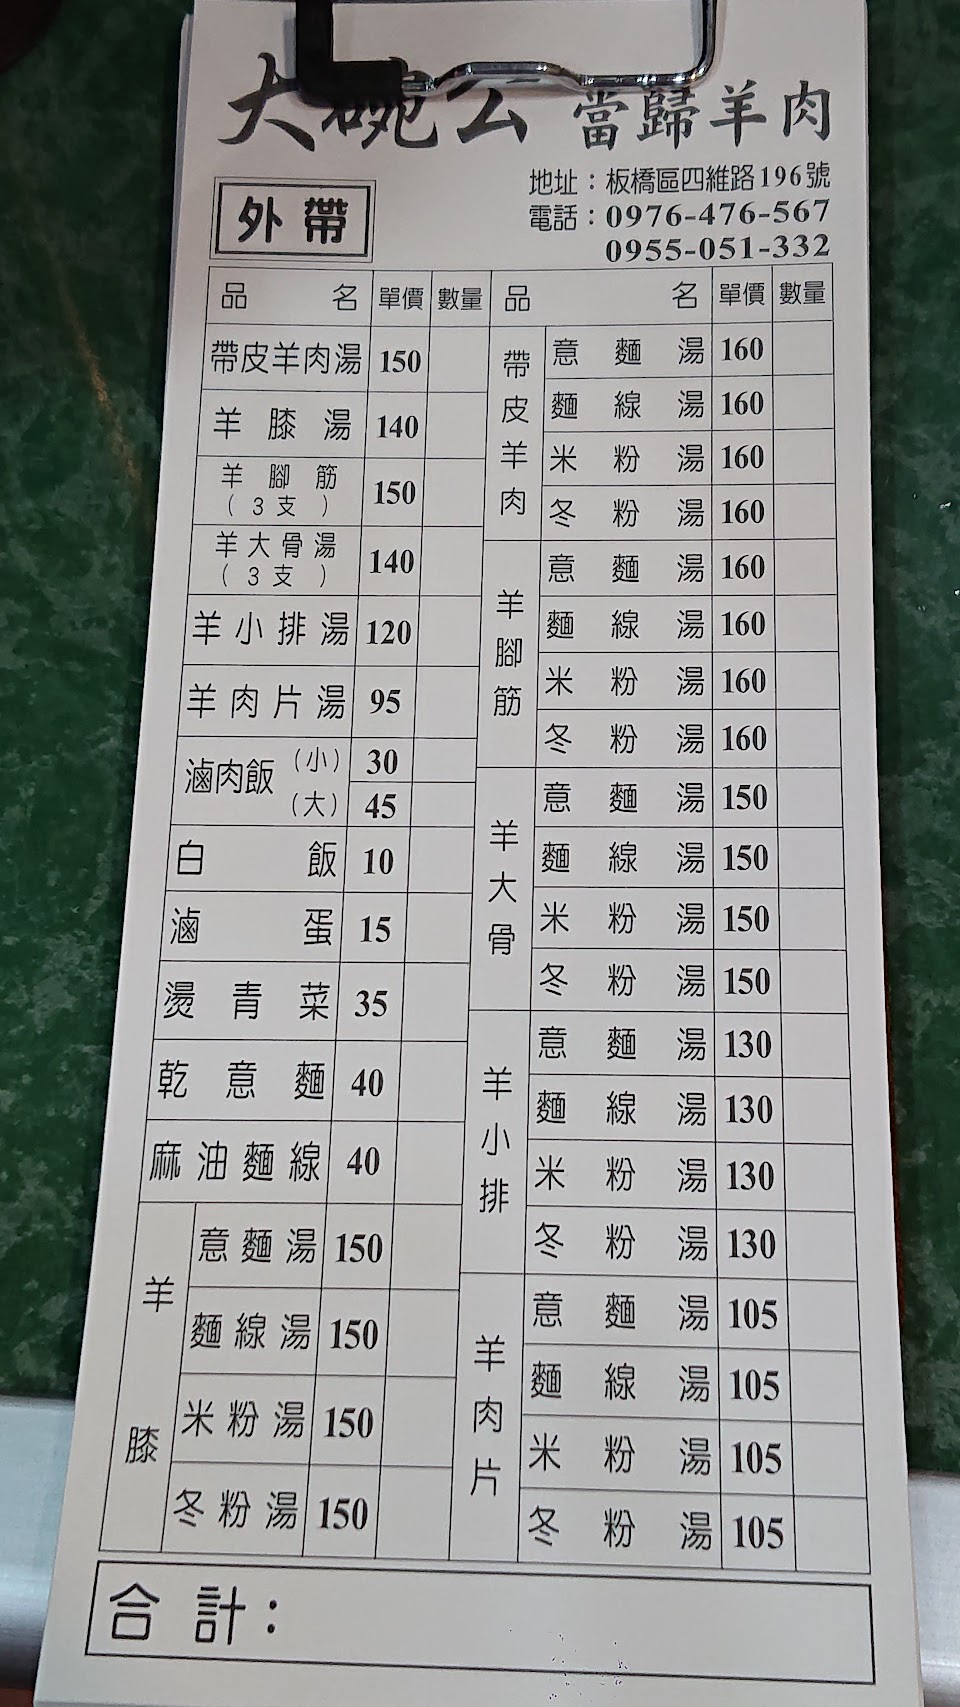 大碗公 當歸羊肉
地址：板橋區四維路196號
電話：0976-476-567
0955-051-332
外帶
品名 單價 數量
帶皮羊肉湯 150
羊膝湯 140
羊腳筋（3支） 150
羊大骨湯（3支） 140
羊小排湯 120
羊肉片湯 95
滷肉飯（小） 30
（大） 45
白飯 10
滷蛋 15
燙青菜 35
乾意麵 40
麻油麵線 40
羊膝
意麵湯 150
麵線湯 150
米粉湯 150
冬粉湯 150
品名 單價 數量
帶皮羊肉
意麵湯 160
麵線湯 160
米粉湯 160
冬粉湯 160
羊腳筋
意麵湯 160
麵線湯 160
米粉湯 160
冬粉湯 160
羊大骨
意麵湯 150
麵線湯 150
米粉湯 150
冬粉湯 150
羊小排
意麵湯 130
麵線湯 130
米粉湯 130
冬粉湯 130
羊肉片
意麵湯 105
麵線湯 105
米粉湯 105
冬粉湯 105
合計：